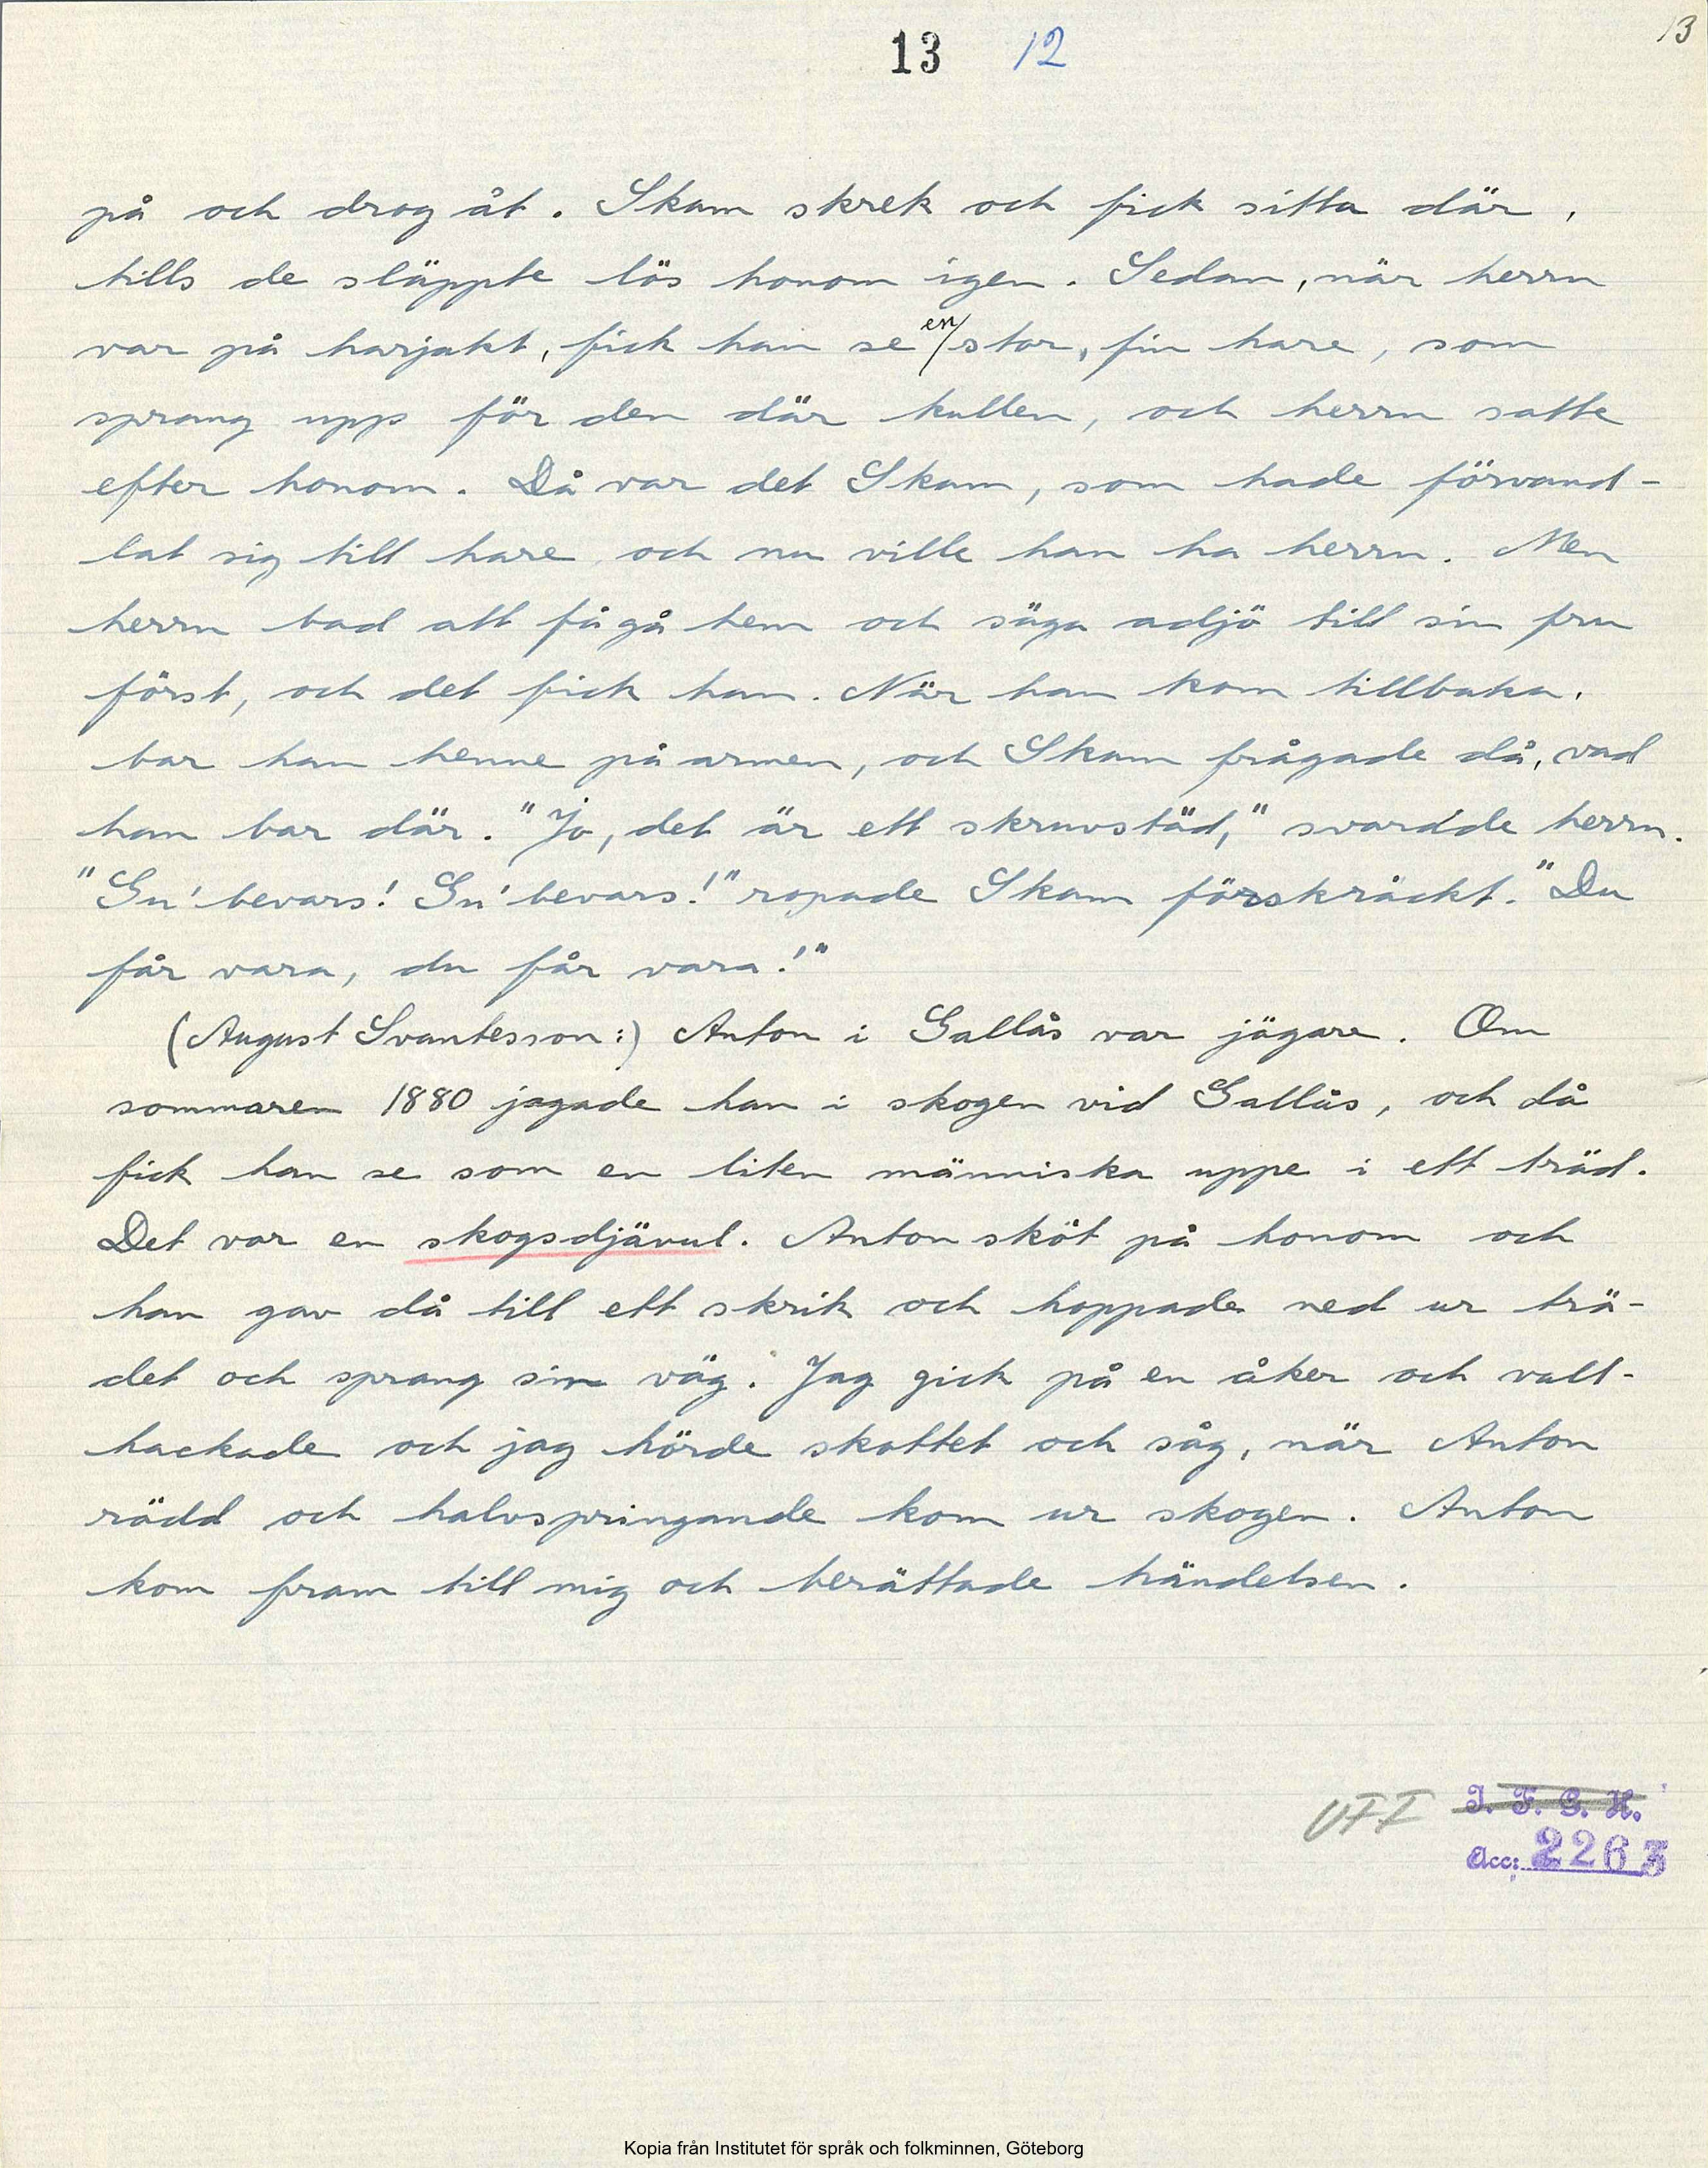 13 12
13
på och drog åt. Skam skrek och fick sitta där,
tills de släppte lös honom igen. Sedan, när herrn
var på harjakt, fick han se en/ stor, fin hare, som
sprang upps för den där kullen, och herrn satte
efter honom. Då var det Skam, som hade förvand-
lat sig till hare och nu ville han ha herrn. Men
herrn bad att få gå hem och säga adjö till sin fru
först, och det fick han. När han kom tillbaka,
bar han henne på armen, och Skam frågade då, vad
han bar där. "Jo, det är ett skruvstäd," svardde herrn.
"Gu' bevars! Gu' bevars!" ropade Skam förskräckt. "Du
får vara, du får vara!"
(August Svantesson:) Anton i Gallås var jägare. Om
sommaren 1880 jagade han i skogen vid Gallås, och då
fick han se som en liten människa uppe i ett träd.
Det var en skogsdjävul. Anton sköt på honom och
han gav då till ett skrik och hoppade ned ur trä-
det och sprang sin väg. Jag gick på en åker och vall-
hackade och jag hörde skottet och såg, när Anton
rädd och halvspringande kom ur skogen. Anton
kom fram till mig och berättade händelsen.
VFF I. F. G. H.
Acc: 2263
Kopia från Institutet för språk och folkminnen, Göteborg